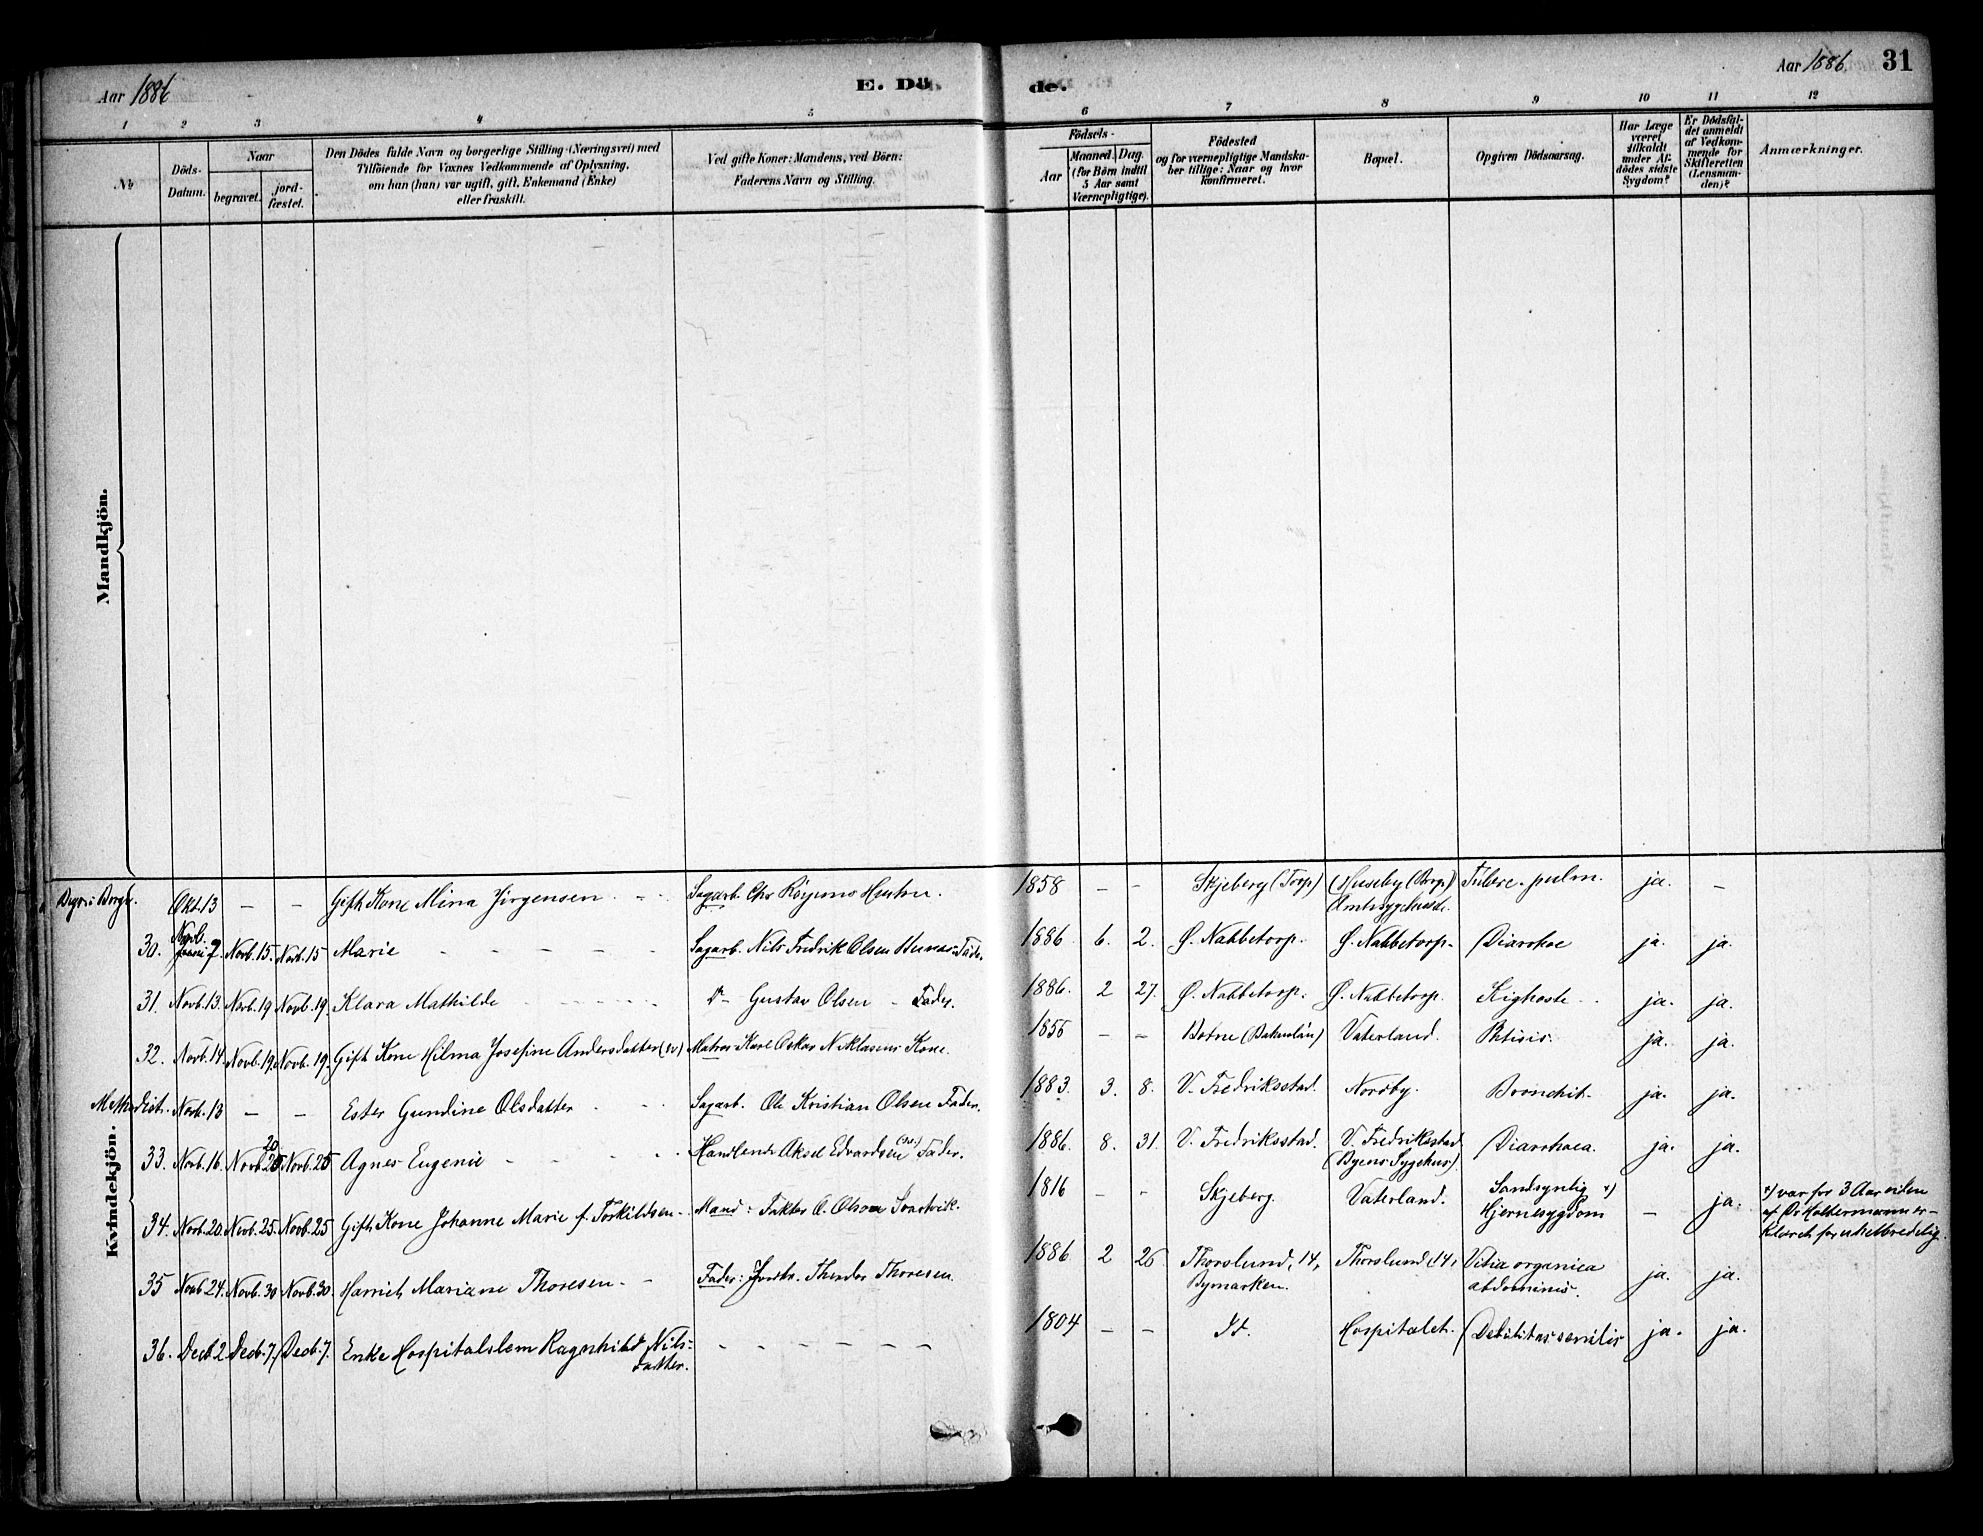 Aar 1886
E. Dö
de.
Aar 1886 31
1 2 3 4 5 6 7 8 9 10 11 12
№
Döds-
Datum.
Naar
begravet.
jord-
fæstet.
Den Dödes fulde Navn og borgerlige Stilling (Næringsvei) med
Tilföiende for Voxnes Vedkommende af Oplysning,
om han (hun) var ugift, gift, Enkemand (Enke)
eller fraskilt.
Ved gifte Koner: Mandens, ved Börn:
Faderens Navn og Stilling.
Födsels-
Aar
Maaned. Dag.
(for Börn indtil
5 Aar samt
Værnepligtige).
Födested
og for værnepligtige Mandska-
ber tillige: Naar og hvor
konfirmeret.
Bopæl.
Opgiven Dödsaarsag.
Har Læge
været
tilkaldt
under Af-
dödes sidste
Sygdom?
Er Dödsfal-
det anmeldt
af Vedkom-
mende for
Skifteretten
(Lensman-
den)?
Anmærkninger.
Mandkjön.
Kvindekjön.
Okt. 13 — — Gift Kone Mina Jörgensen Sagarb. Chr 1858 — — Skjeberg (Torp) (Huseby (Borge) Tuberc. pulm. ja. —
Amtssygehuset.
30. Novb. 7. Novb. 15. Novb. 15 Marie Sagarb. Nils Fredrik Olsen Fader. 1886 6. 2. Ø. Nabbetorp. Ø. Nabbetorp. Diarrhoe ja. ja.
31. Novb. 13. Novb. 19 Novb. 19. Klara Mathilde Do Gustav Olsen — Fader. 1886. 2 27. Ø. Nabbetorp. Ø. Nabbetorp. Kighoste ja. ja.
32. Novb. 14. Novb. 19. Novb. 19. Gift Kone Hilma Josefine Andersdatter Matros Karl Oskar Niklasens Kone. — — Vaterland. Phtisis. ja. ja.
Methodist. Novb. 13 — — Ester Gundine Olsdatter Sagarb. Ole Kristian Olsen Fader. 1883. 3. 8. V. Fredriksstad. Nordby. Bronchit. ja. ja.
33. Novb. 16. Novb. 20 Novb. 25 Agnes Eugenie Handlende Aksel Edvardsen Fader. 1886. 8. 31. V. Fredriksstad. V. Fredriksstad Diarrhoea. ja. ja.
(Byens Sygehus).
34. Novb. 20. Novb. 25. Novb. 25 Gift Kone Johanne Marie f. Torkildsen Mand: Faktor O. Olsen Svartvik. 1816 — — Skjeberg. Vaterland. Sandsynlig x)
Hjernesygdom — ja.
x) var for 3 Aar siden
af Dr. er-
klæret for uhelbredelig.
35 Novb 24. Novb. 30 Novb. 30. Harriet Mariane Thoresen. Fader: Theodor Thoresen. 1886 2 26 Thorslund, 14,
Bymarken. Thorslund 14, Vitia organica
abdominis. ja. ja.
36. Decb. 2 Decb. 7. Decb. 7. Enke Hospitalslem Ragnhild Nils-
datter. — — — 1804 — — Hospitalet. Debilitas senilis ja. ja.